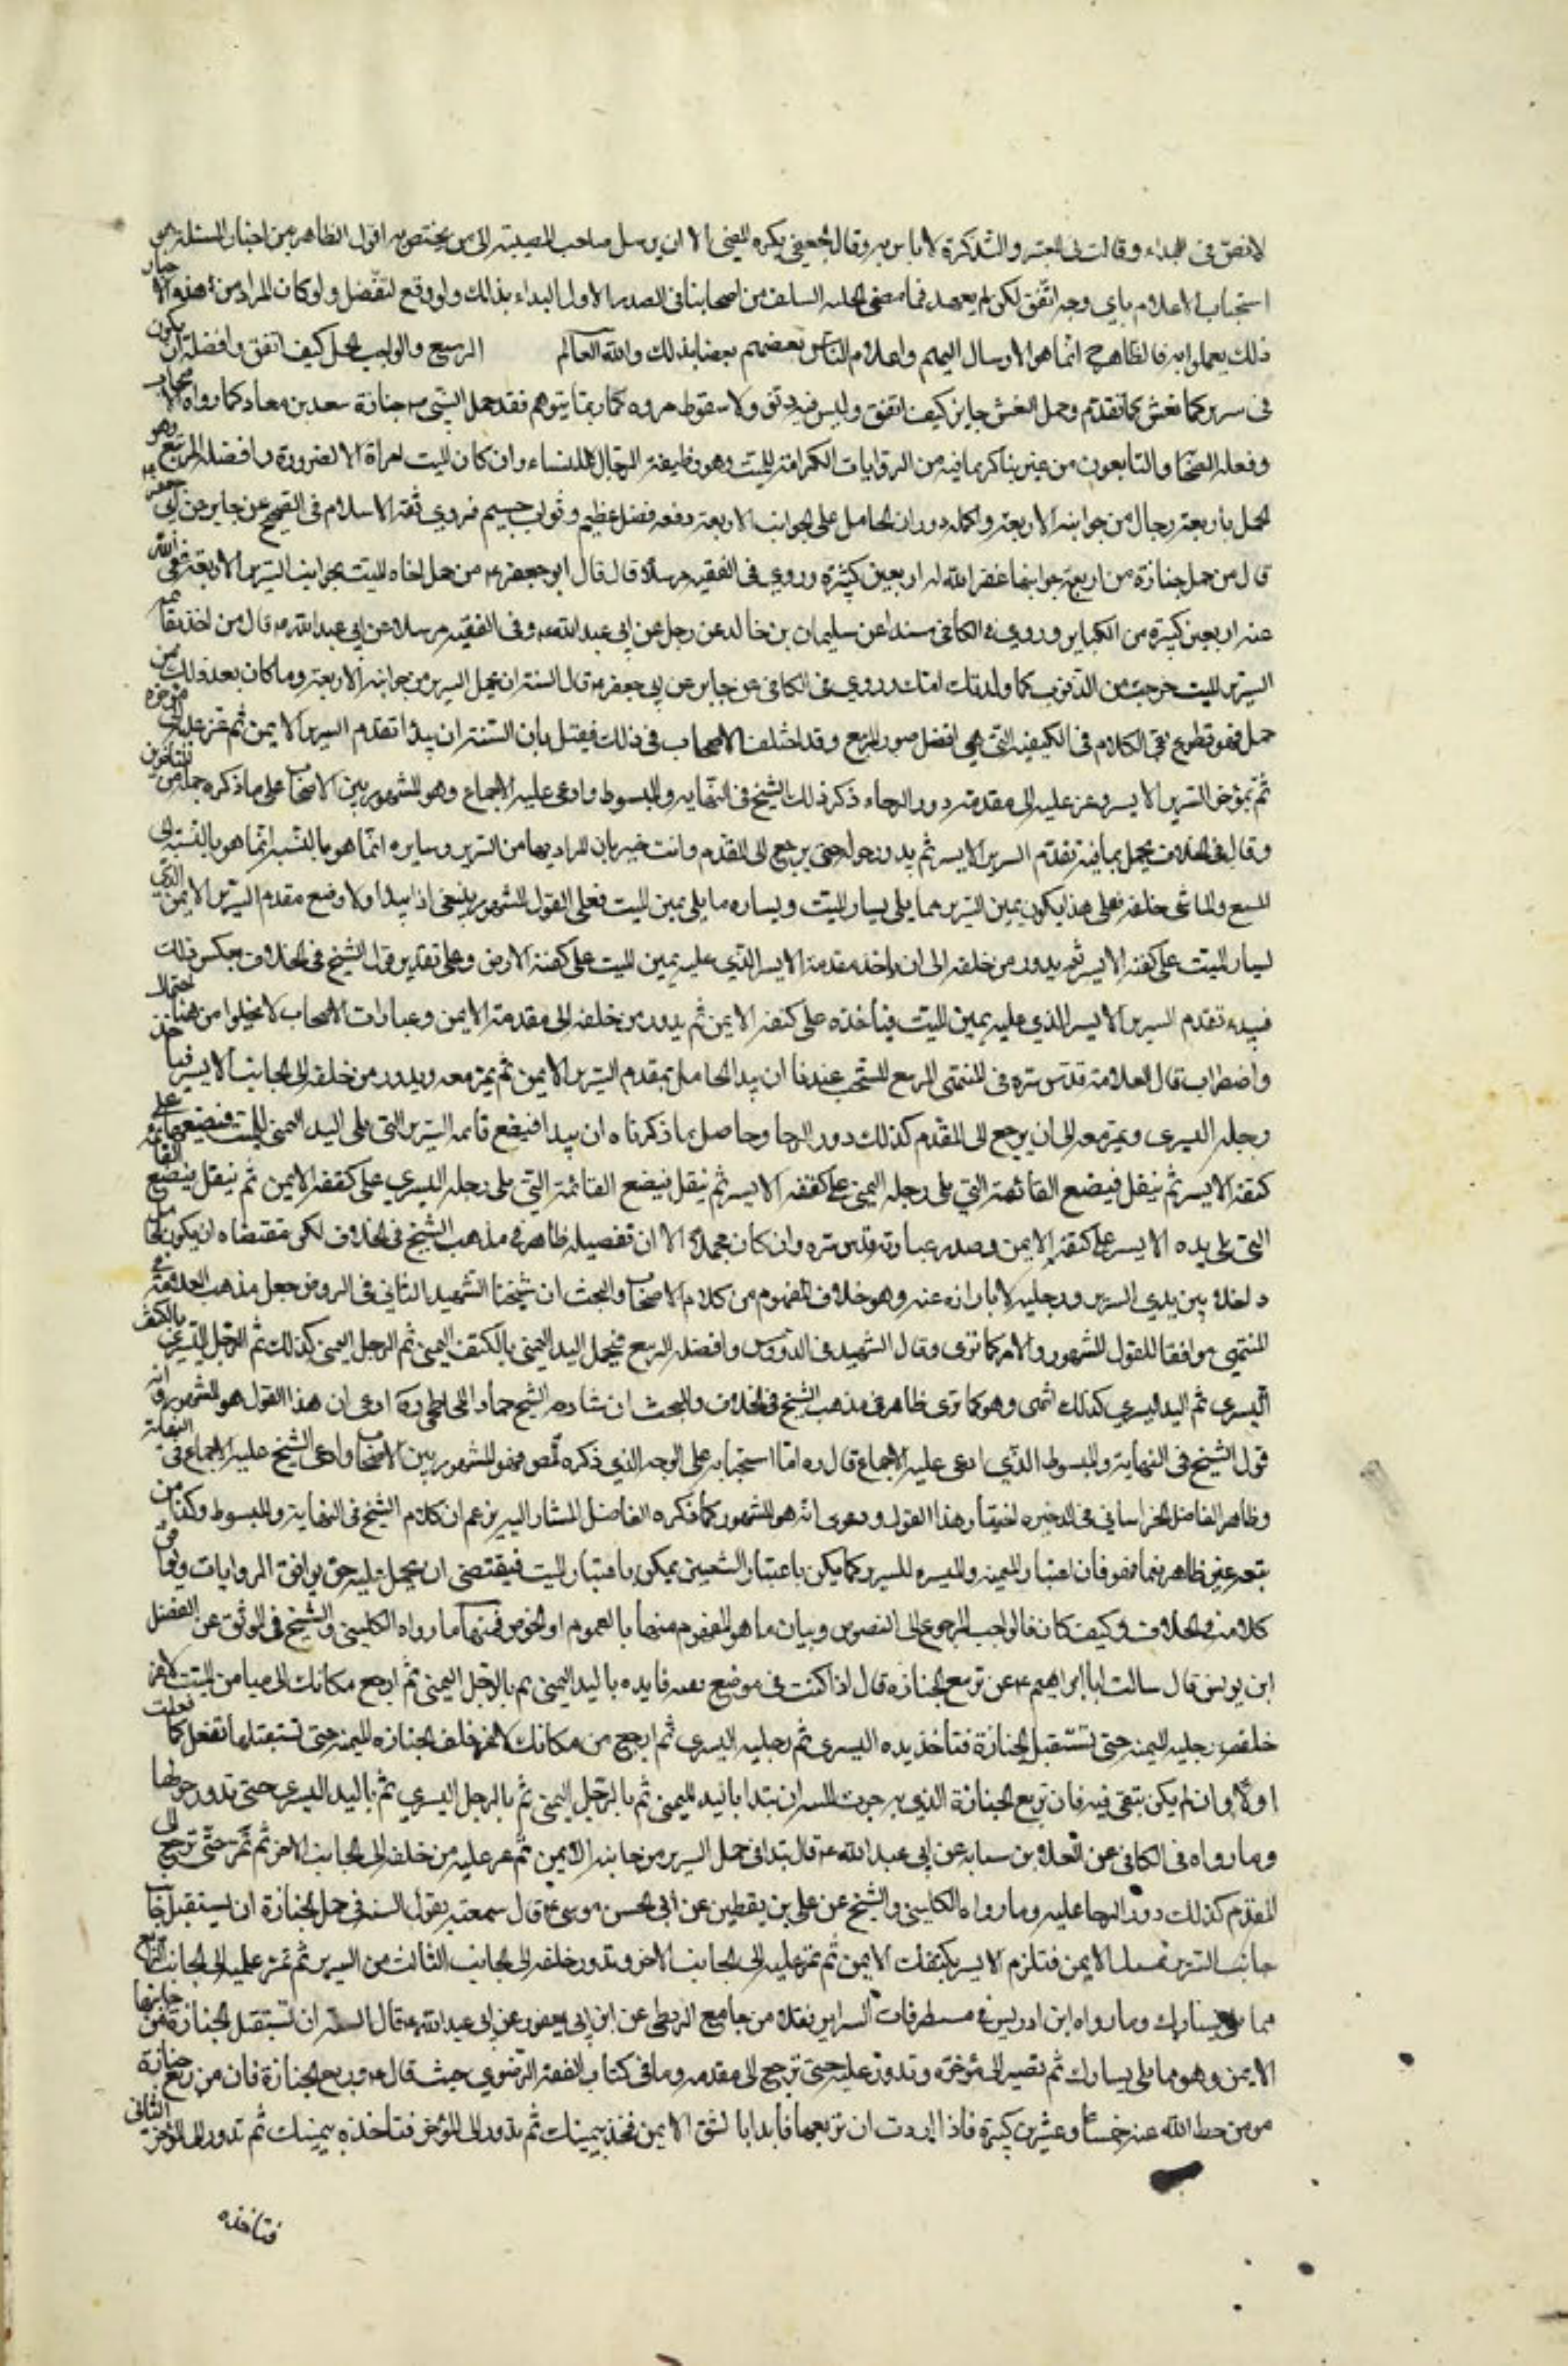 لا نص في النداء وقال في المعتبر والتذكرة لا باس به وقال الجعفي يكره النعي الا ان يرسل صاحب المصيبة الى من يختص به اقول الظاهر من اخبار المسئلة هو
استحباب الاعلام باي وجه اتفق لكن لم يعهد فيما مضى عليه السلف من اصحابنا في الصدر الاول النداء بذلك ولو وقع لنقل ولو كان المراد من هذه الاخبار
ذلك لعملوا به فالظاهر ح انما هو الارسال اليهم واعلام الناس بعضهم بعضا بذلك والله العالم الربيع والواجب الحمل كيف اتفق وافضله ان يكون
في سرير كما نعش كما تقدم وحمل النعش جايز كيف اتفق وليس فيه دنو ولا سقوط مروه كما ربما يتوهم فقد حمل النبي ص جنازة سعد بن معاد كما رواه الا
وفعله الصحابة والتابعون من غير تناكر لما فيه من الروايات الكرامة للميت وهو وظيفة الرجال لا للنساء وان كان الميت امراة الا لضرورة وافضله التربيع وهو
الحمل باربعة رجال من جوانبه الاربعة واكمله دوران الحامل على الجوانب الاربعة وفيه فضل عظيم وثواب جسيم فروى ثقة الاسلام في الصحيح عن جابر عن ابي جعفر ع
قال من حمل جنازة من اربع جوانبها غفر الله له اربعين كبيرة وروي في الفقيه مرسلا قال قال ابو جعفر ع من حمل اخاه الميت بجوانب السرير الاربعة محى الله
عنه اربعين كبيرة من الكباير وروي في الكافي مسندا عن سليمان بن خالد عن رجل عن ابي عبد الله ع وفي الفقيه مرسلا عن ابي عبد الله ع قال من اخذ بقائمه
السرير للميت خرج من الذنوب كما ولدتك امك وروي في الكافي عن جابر عن ابي جعفر ع قال السنة ان يحمل السرير من جوانبه الاربعة وما كان بعد ذلك من
حمل فهو تطوع بقي الكلام في الكيفية التي هي افضل صور التربيع وقد اختلف الاصحاب في ذلك فقيل بان السنة ان يبدا بمقدم السرير الايمن ثم يمر عليه الى مؤخره
ثم بمؤخر السرير الايسر ويمر عليه الى مقدمه دور الرحاء ذكر ذلك الشيخ في النهايه والمبسوط وادعى عليه الاجماع وهو المشهور بين الاصحاب على ما ذكره جملة من المتاخرين
وقال في الخلاف يحمل بميامنه مقدم السرير الايسر ثم يدور حوله حتى يرجع الى المقدم وانت خبير بان المراد بيمين السرير ويساره انما هو بالنسبة انما هو بالنسبة الى
المشيع والماشي خلفه فعلى هذا يكون يمين السرير مما يلي يسار الميت ويساره ما يلي يمين الميت فعلى القول المشهور ينبغي اذا يبدا اولا وضع مقدم السرير الايمن الذي
ليسار الميت على كتفه الايسر ثم يدور من خلفه الى ان ياخذ مقدمه الايسر الذي عليه يمين الميت على كتفه الايمن وعلى تقدير قول الشيخ في الخلاف بعكس ذلك
فيبدء بمقدم السرير الايسر الذي عليه يمين الميت فياخذه على كتفه الايمن ثم يدور من خلفه الى مقدمه الايمن وعبارات الاصحاب لا تخلوا من هنا احتمال
واضطراب قال العلامة قدس سره في المنتهى التربيع المستحب عندنا ان يبدا الحامل بمقدم السرير الايمن ثم يمر معه ويدور من خلفه الى الجانب الايسر فياخذ
رجله اليسرى ويمر معه الى ان يرجع الى المقدم كذلك دور الرحا وحاصل ما ذكرناه ان يبدا فيضع قائمه السرير التي تلي اليد اليمنى للميت فيضعها على
كتفه الايسر ثم ينتقل فيضع القائمة التي تلي رجله اليمنى على كتفه الايسر ثم ينتقل فيضع القائمة التي تلي رجله اليسرى على كتفه الايمن ثم ينتقل فيضع القائمه
التي تلي يده الايسر على كتفه الايمن وصدر عبارته قدس سره وان كان مجملا الا ان تفصيله ظاهر في مذهب الشيخ في الخلاف لكن مقتضاه ان يكون
داخلا بين يدي السرير ورجليه لا بارزا عنه وهو خلاف المفهوم من كلام الاصحاب والعجب ان شيخنا الشهيد الثاني في الروض جعل مذهب العلامة في
المنتهى موافقا للقول المشهور والامر كما ترى وقال الشهيد في الدروس وافضله التربيع فيحمل اليد اليمنى بالكتف اليمنى ثم الرجل اليمنى كذلك ثم الرجل اليسرى بالكتف
اليسرى ثم اليد اليسرى كذلك انتهى وهو كما ترى ظاهر في مذهب الشيخ في الخلاف والعجب ان شارحه الشيخ جواد الكاظمي ره ادعى ان هذا القول هو المشهور وانه
قول الشيخ في النهاية والمبسوط الذي ادعى عليه الاجماع قال ره اما استحبابه على الوجه الذي ذكره المص فهو المشهور بين الاصحاب وادعى الشيخ عليه الاجماع في النهاية
وظاهر الفاضل الخراساني في الذخيره اختيار هذا القول ودعوى انه هو المشهور كما ذكره الفاضل المشار اليه بزعم ان كلام الشيخ في النهاية والمبسوط وكذا من
تبعه غير ظاهر فيما فهموه فان اعتبار الميمنه والميسره للسرير كما يمكن باعتبار المشيعين يمكن باعتبار الميت فيقتضي ان يحمل عليه حتى يوافق الروايات ويوافق
كلامه في الخلاف وكيف كان فالواجب الرجوع الى النصوص وبيان ما هو المفهوم منها بالعموم او الخصوص فمنها ما رواه الكليني والشيخ في الموثق عن الفضل
ابن يونس قال سالت ابا ابراهيم ع عن تربيع الجنازه قال اذا كنت في موضع تقيه فابده باليد اليمنى ثم بالرجل اليمنى ثم ارجع مكانك الى ميامن الميت لا تمر
خلف رجليه البته حتى تستقبل الجنازة فتأخذ يده اليسرى ثم رجليه اليسرى ثم ارجع من مكانك لا تمر خلف الجنازه البته حتى تستقبلها تفعل كما فعلت
اولا وان لم يكن تتقى فيه فان تربيع الجنازة الذي به جرت السنه ان تبدا باليد اليمنى ثم بالرجل اليمنى ثم بالرجل اليسرى ثم باليد اليسرى حتى تدور حولها
وما رواه في الكافي عن العلا بن سيابه عن ابي عبد الله ع قال تبدا في حمل السرير من جانبه الايمن ثم تمر عليه من خلفه الى الجانب الاخر ثم تمر حتى ترجع الى
المقدم كذلك دور الرحا عليه وما رواه الكليني والشيخ عن علي بن يقطين عن ابي الحسن موسى ع قال سمعته يقول السنه في حمل الجنازة ان تستقبل
جانب السرير بشقك الايمن فتلزم الايسر بكتفك الايمن ثم تمر عليه الى الجانب الاخر وتدور خلفه الى الجانب الثالث من السرير ثم تمر عليه الى الجانب الرابع
مما يلي يسارك وما رواه ابن ادريس في مستطرفات السراير نقلا من جامع البزنطي عن ابن ابي يعفور عن ابي عبد الله ع قال السنة ان تستقبل الجنازة من جانبها
الايمن وهو مما يلي يسارك ثم تصير الى مؤخره وتدور عليه حتى ترجع الى مقدمه وما في كتاب الفقه الرضوي حيث قال ع وربع الجنازة فان من ربع جنازة
مومن حط الله عنه خمسا وعشرين كبيرة فاذا اردت ان تربعها فابدا بالشق الايمن فخذه بيمينك ثم تدور الى المؤخر فتاخذه بيمينك ثم تدور الى المؤخر الثاني
فتاخذه